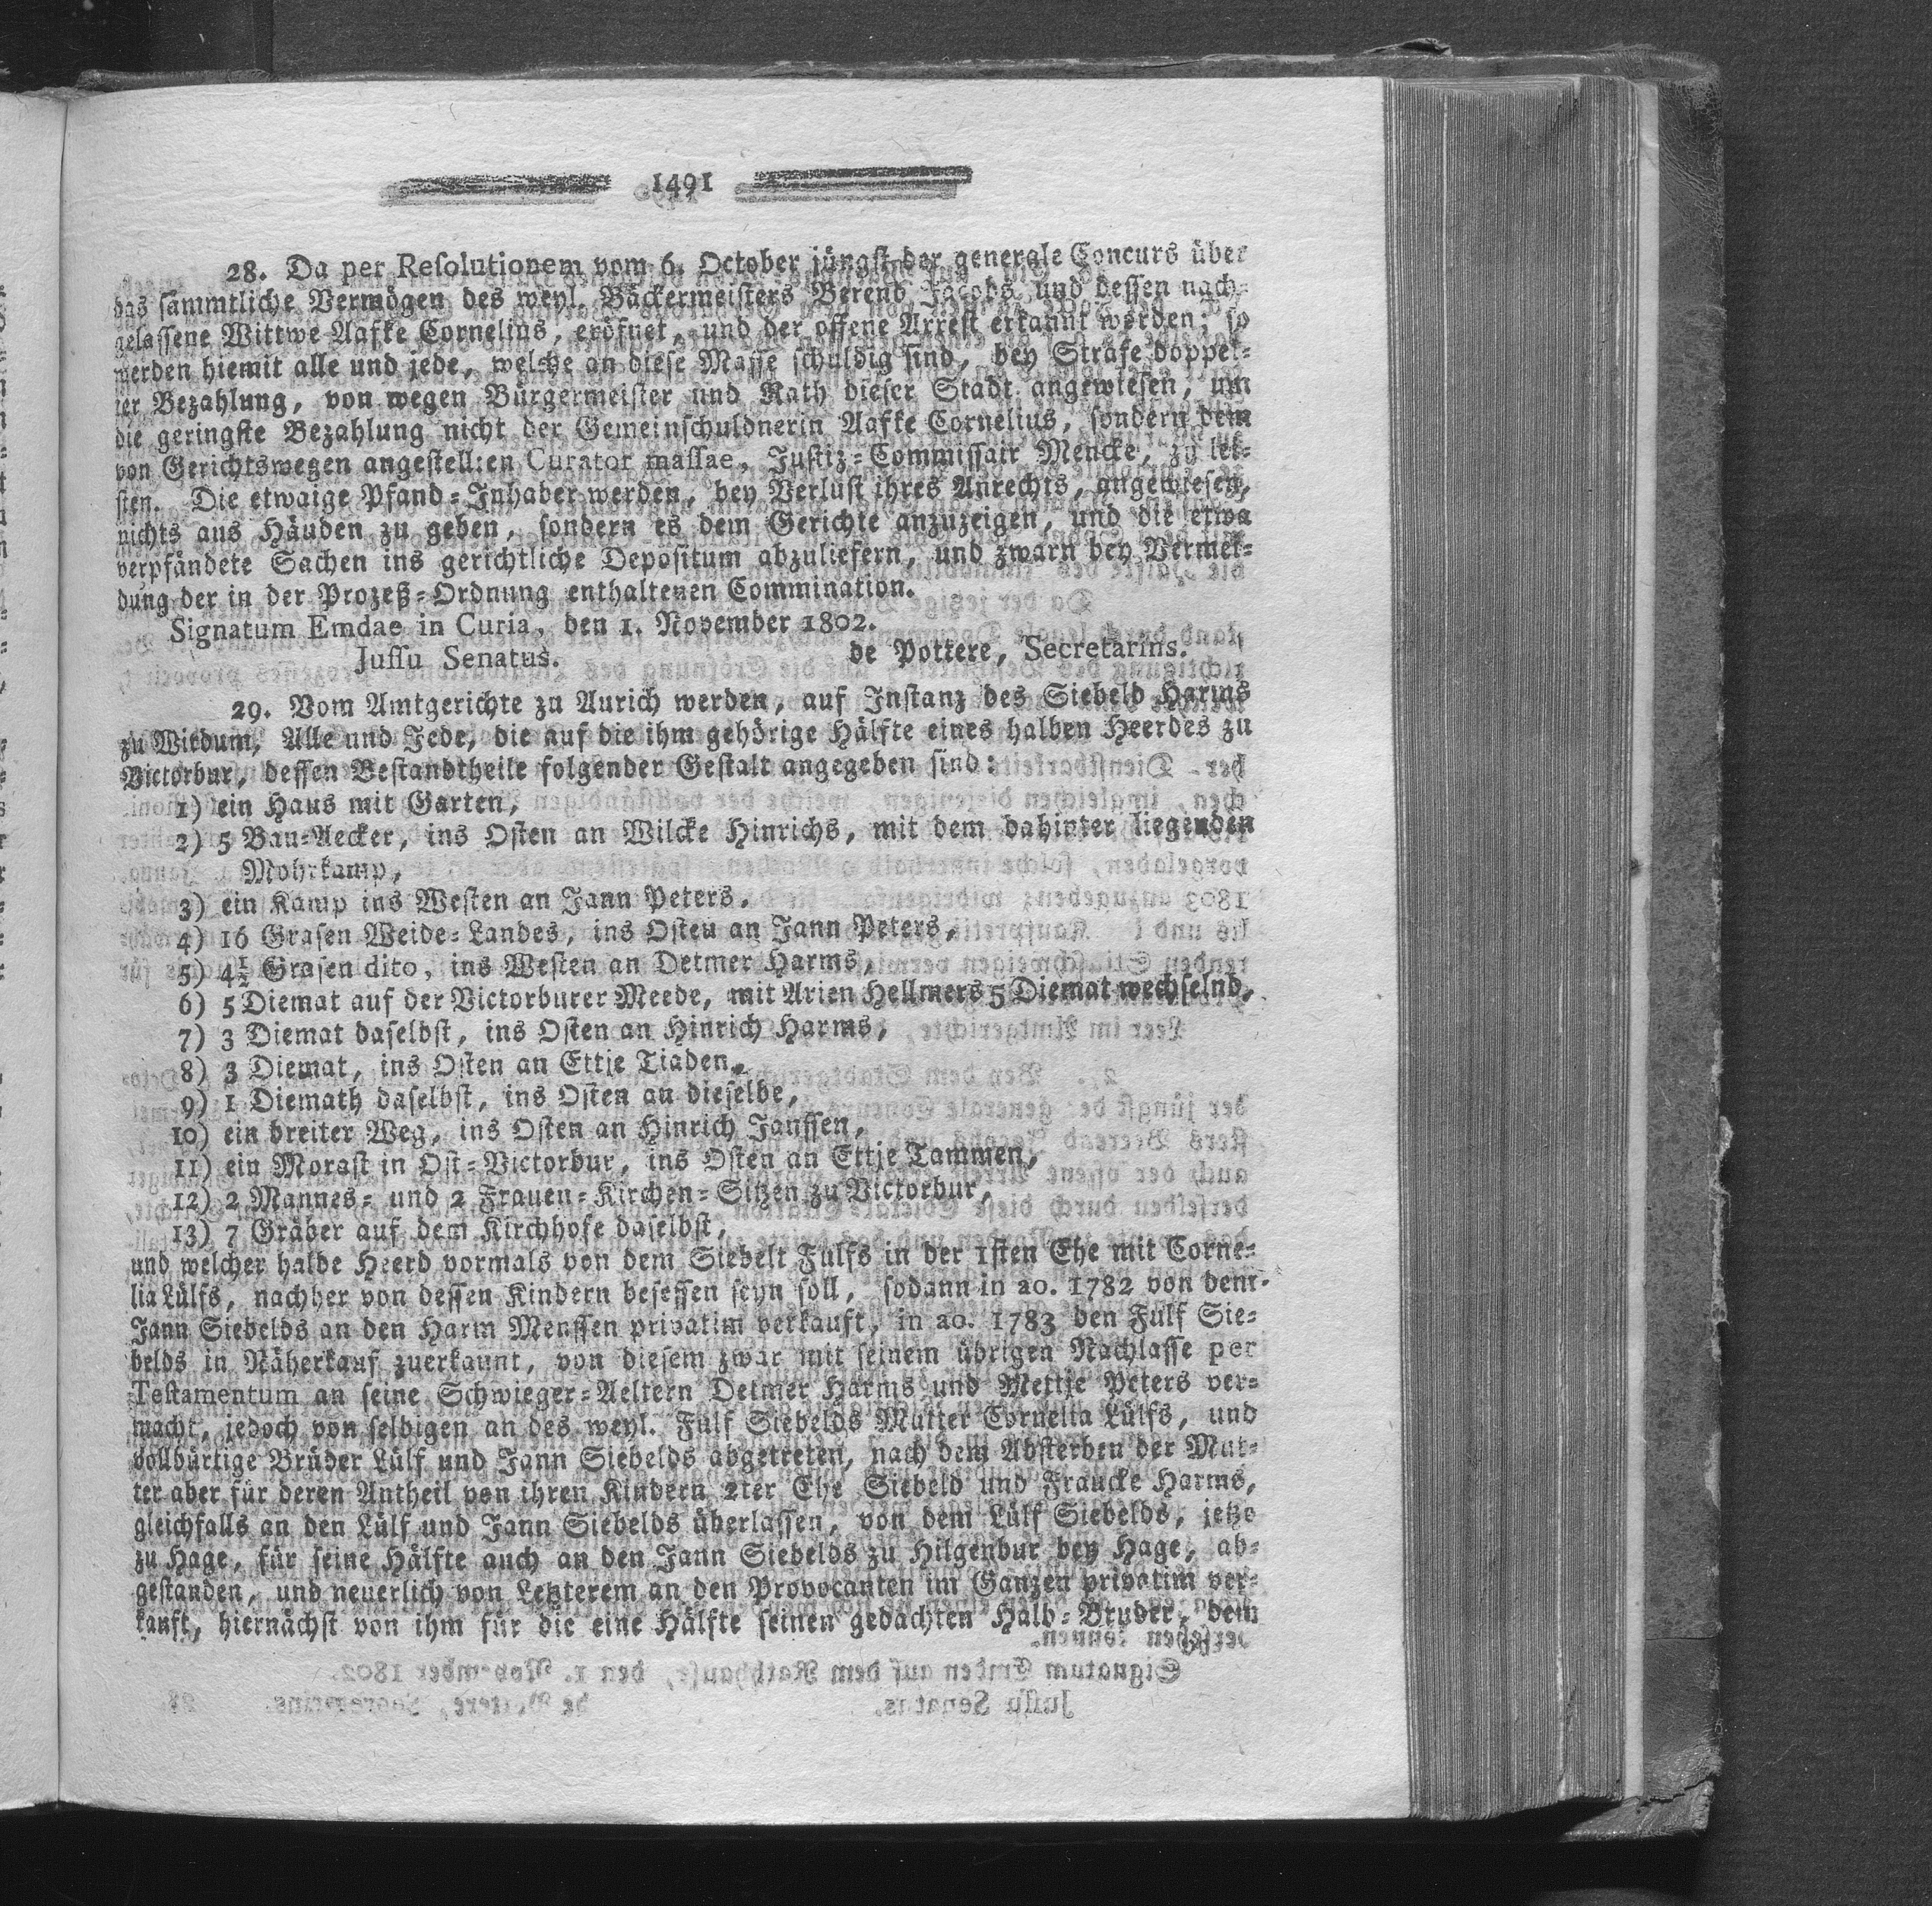 1491
28. Da per Resolutionem vom 6. October jüngst der generale Concurs über
das sämmtliche Vermögen des weyl. Bäckermeisters Berend Jacobs und dessen nach-
gelassene Wittwe Aafke Cornelius, eröfnet, und der offene Arrest erkannt worden; so
werden hiemit alle und jede, welche an diese Masse schuldig sind, bey Strafe doppel-
ter Bezahlung, von wegen Bürgermeister und Rath dieser Stadt angewiesen, um
die geringste Bezahlung nicht der Gemeinschuldnerin Aafke Cornelius, sondern dem
von Gerichtswegen angestellten Curator massae, Justiz-Commissair Mencke, zu lei-
sten. Die etwaige Pfand-Inhaber werden, bey Verlust ihres Anrechts, angewiesen,
nichts aus Häuden zu geben, sondern es dem Gerichte anzuzeigen, und die etwa
verpfändete Sachen ins gerichtliche Depositum abzuliefern, und zwarn bey Vermei-
dung der in der Prozeß-Ordnung enthaltenen Commination.
Signatum Emdae in Curia, den 1. November 1802.
Jussu Senatus. de Pottere, Secretarius.
29. Vom Amtgerichte zu Aurich werden, auf Instanz des Siebeld Harms
zu Wirdum, Alle und Jede, die auf die ihm gehörige Hälfte eines halben Heerdes zu
Victorbur, dessen Bestandtheile folgender Gestalt angegeben sind:
1) ein Haus mit Garten,
2) 5 Bau-Aecker, ins Osten an Wilcke Hinrichs, mit dem dahinter liegenden
Mohrkamp,
3) ein Kamp ins Westen an Jann Peters,
4) 16 Grasen Weide-Landes, ins Osten an Jann Peters,
5) 4½ Grasen dito, ins Westen an Detmer Harms,
6) 5 Diemat auf der Victorburer Meede, mit Arien Hellmers 5 Diemat wechselnd,
7) 3 Diemat daselbst, ins Osten an Hinrich Harms,
8) 3 Diemat, ins Osten an Ettje Tiaden,
9) 1 Diemath daselbst, ins Osten an dieselbe,
10) ein breiter Weg, ins Osten an Hinrich Janssen,
11) ein Morast in Ost-Victorbur, ins Osten an Ettje Tammen,
12) 2 Mannes- und 2 Frauen-Kirchen-Sitzen zu Victorbur,
13) 7 Gräber auf dem Kirchhofe daselbst,
und welcher halbe Heerd vormals von dem Siebelt Fulfs in der 1sten Ehe mit Corne-
lia Lülfs, nachher von dessen Kindern besessen seyn soll, sodann in ao. 1782 von dem
Jann Siebelds an den Harm Menssen privatim verkauft, in ao. 1783 den Fulf Sie-
belds in Näherkauf zuerkannt, von diesem zwar mit seinem übrigen Nachlasse per
Testamentum an seine Schwieger-Aeltern Detmer Harms und Mettje Peters ver-
macht, jedoch von selbigen an des weyl. Fulf Siebelds Mutter Cornelia Lülfs, und
vollbürtige Brüder Lülf und Jann Siebelds abgetreten, nach dem Absterben der Mut-
ter aber für deren Antheil von ihren Kindern 2ter Ehe Siebeld und Fraucke Harms,
gleichfalls an den Lülf und Jann Siebelds überlassen, von dem Lülf Siebelds, jetzo
zu Hage, für seine Hälfte auch an den Jann Siebelds zu Hilgenbur bey Hage, ab-
gestanden, und neuerlich von Letzterem an den Provocanten im Ganzen privatim ver-
kauft, hiernächst von ihm für die eine Hälfte seinen gedachten Halb-Bruder, dem